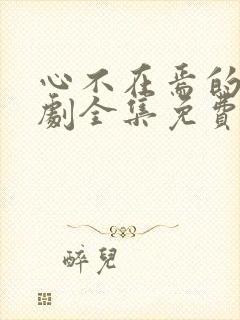 心不在焉的
劇全集免費
醉兒